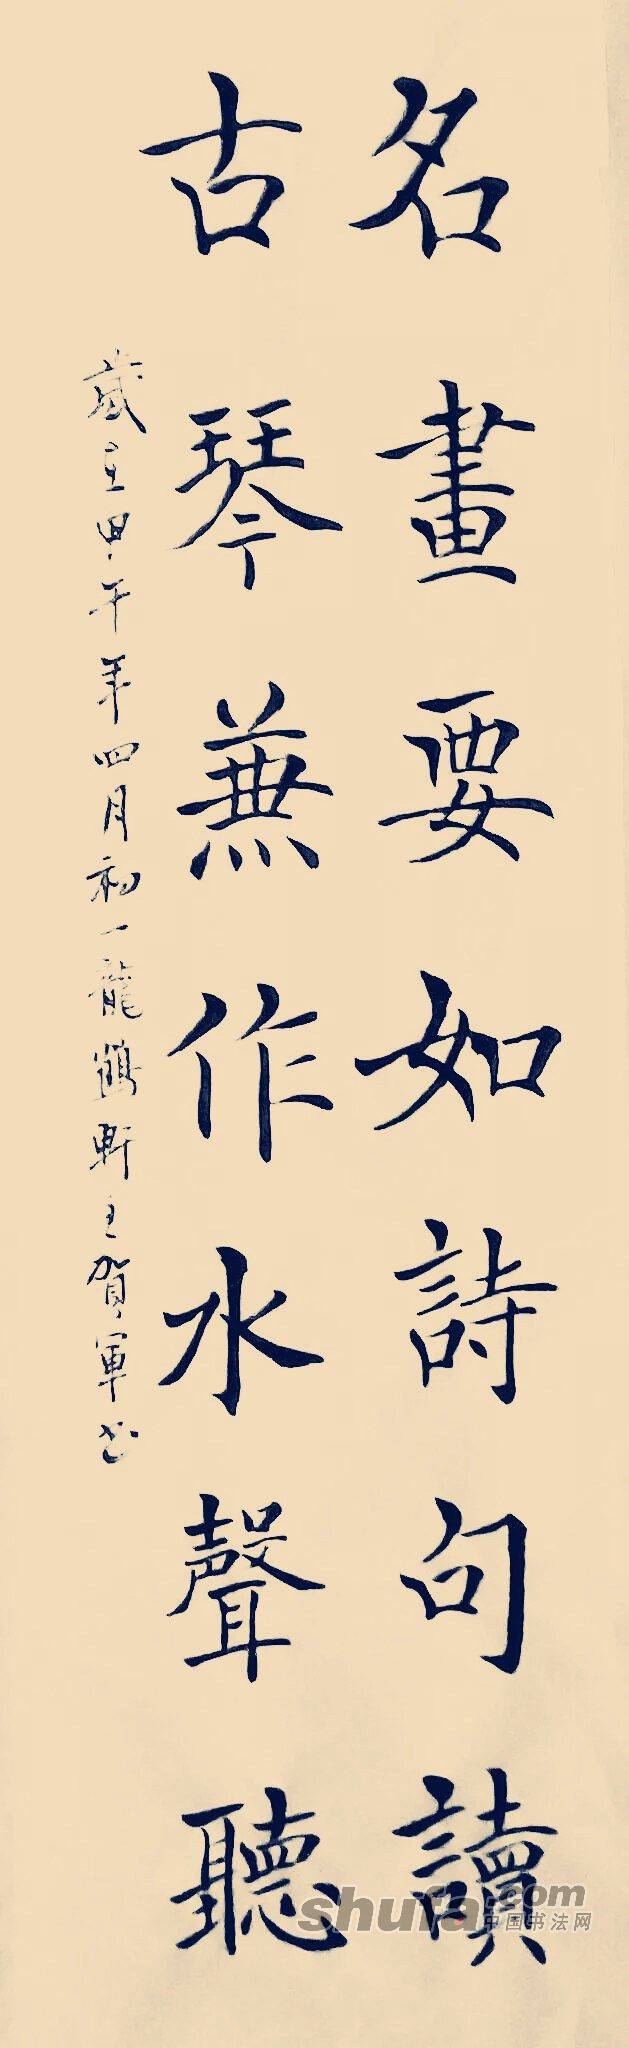 名畫要如詩句讀
古琴蒹作水聲聽
歲在甲午年四月初一龍鶴軒主賀軍书
shufa.com
中国书法网